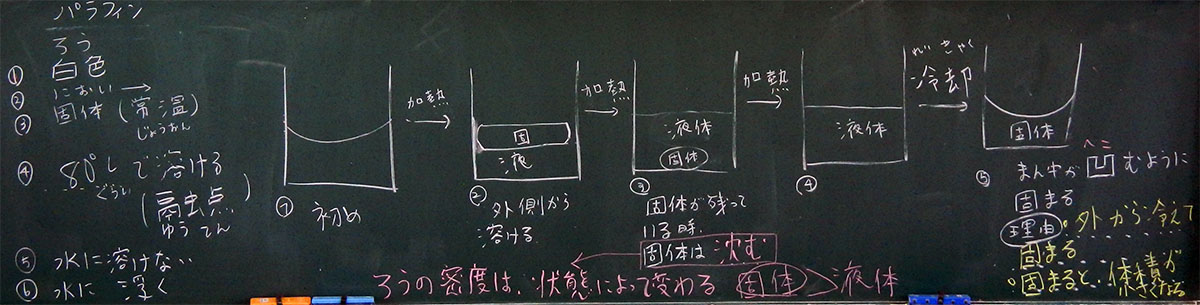 パラフィン
ろう
① 白色
② におい→
③ 固体(常温)
じょうおん
④ 80℃で溶ける
ぐらい
(融点)
ゆうてん
⑤ 水に溶けない
⑥ 水に 浮く
① 初め
加熱
固
液
② 外側から
溶ける
加熱
液体
固体
③ 固体が残って
いる時、
固体は沈む
加熱
液体
④
れいきゃく
冷却
固体
へこ
⑤ まん中が凹むように
固まる
理由 外から冷えて
固まる
固まると、体積が
ろうの密度は、状態によって変わる 固体>液体